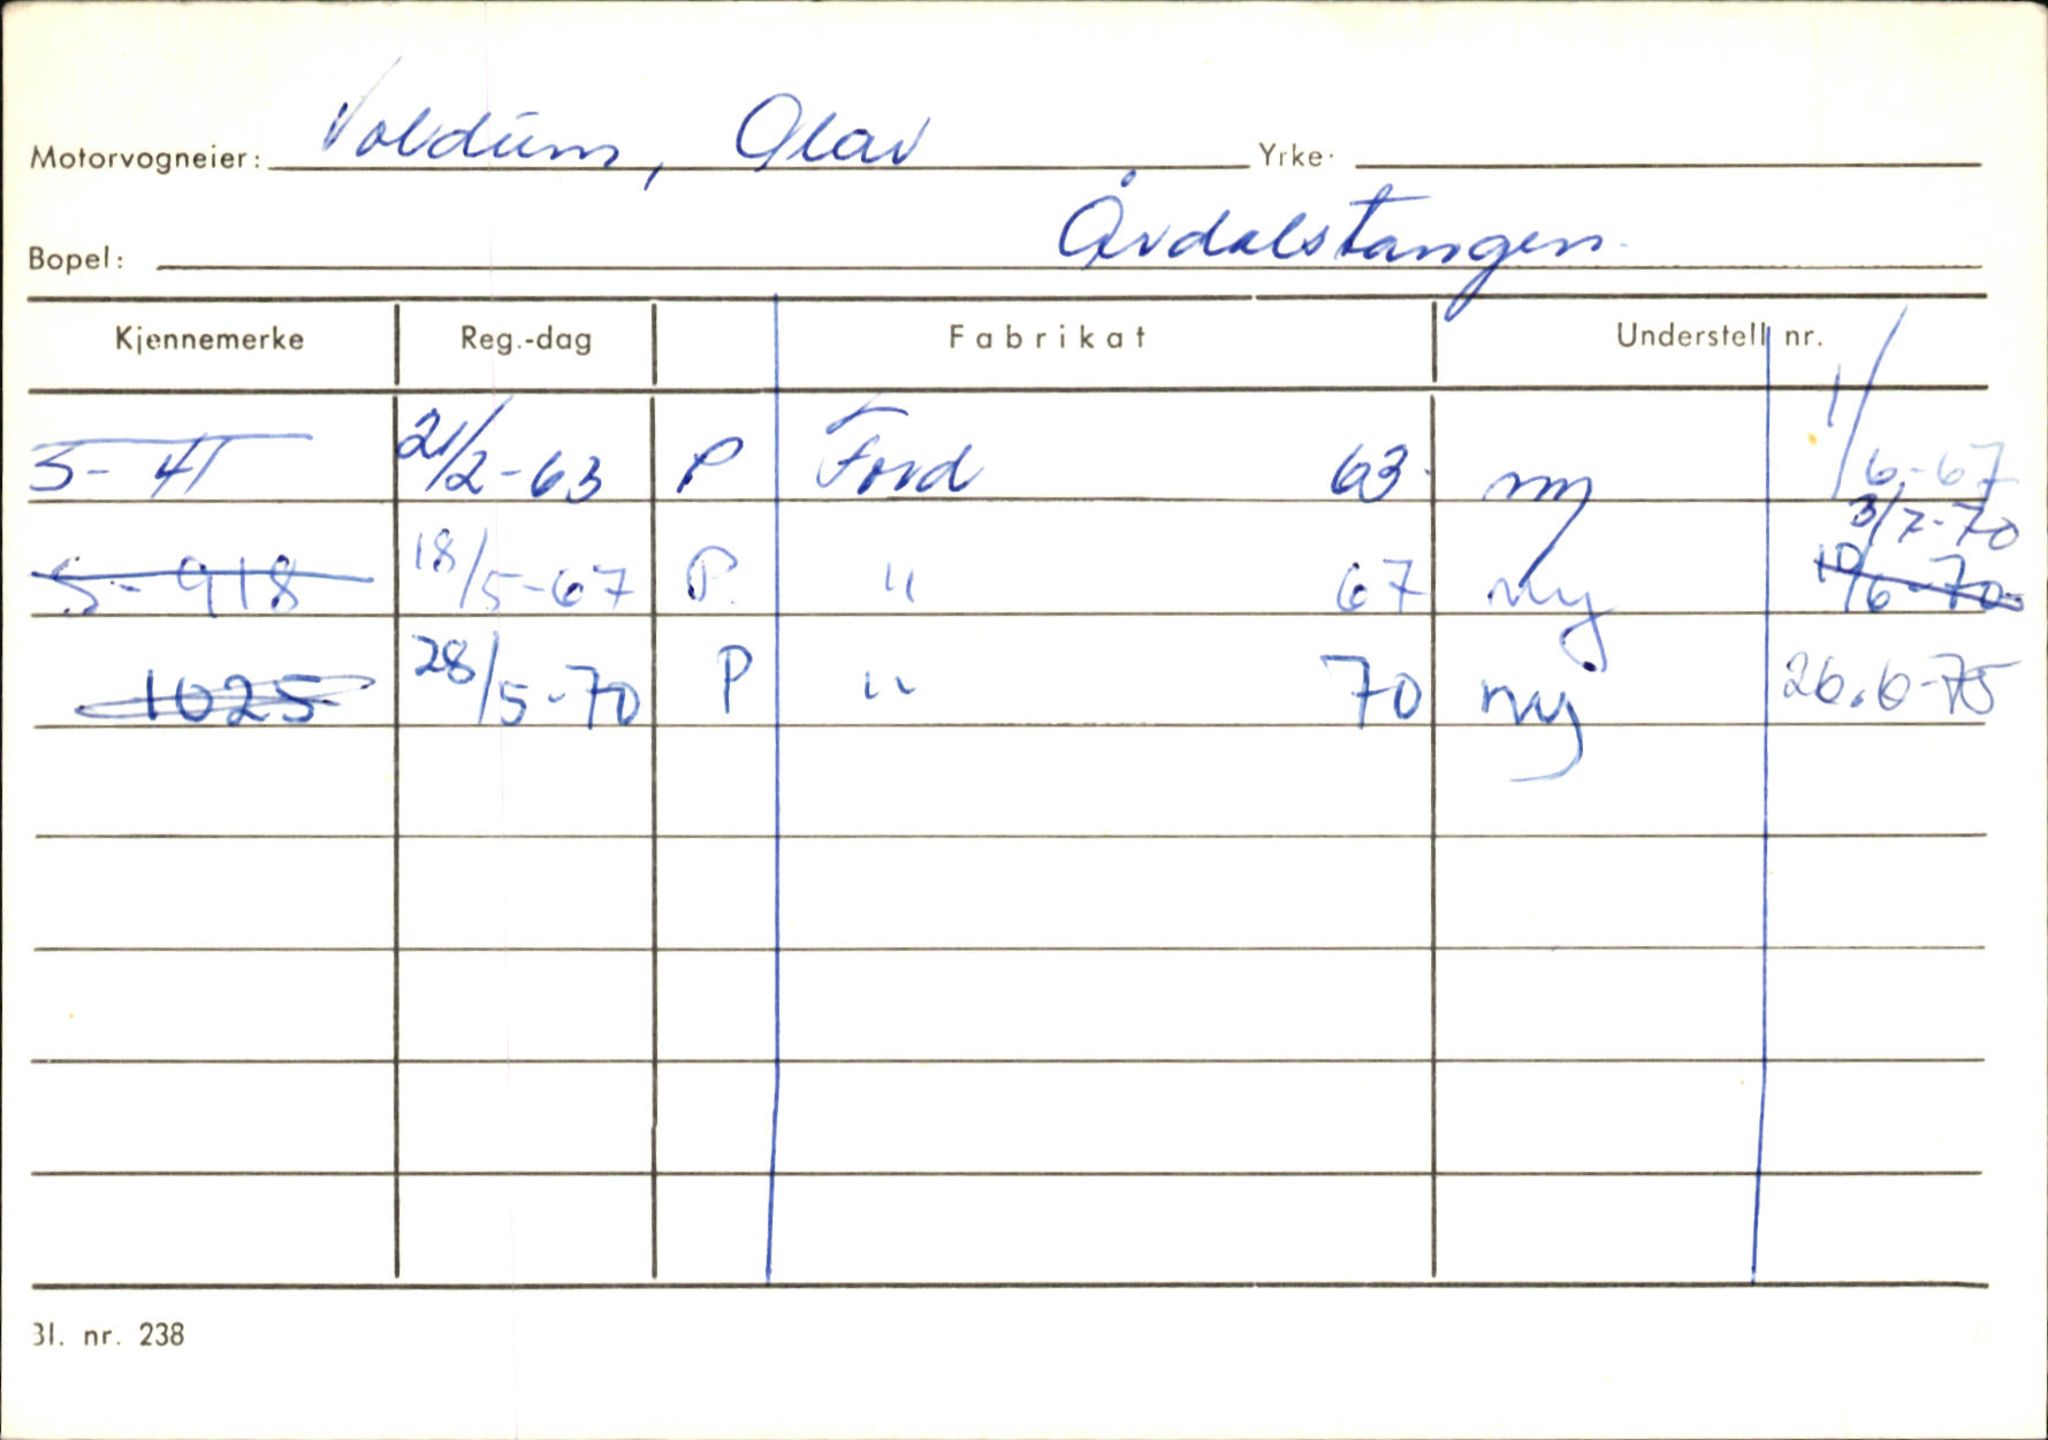 Motorvogneier: Voldum, Olav Yrke:
Bopel: Årdalstangen
Kjennemerke Reg.-dag Fabrikat Understell nr.
S- 41 21/2-63 P Ford 63 ny 1/6-67
3/7-70
S-918 18/5-67 P. " 67 ny 10/6-70
1025 28/5-70 P " 70 ny 26.6-75
Bl. nr. 238